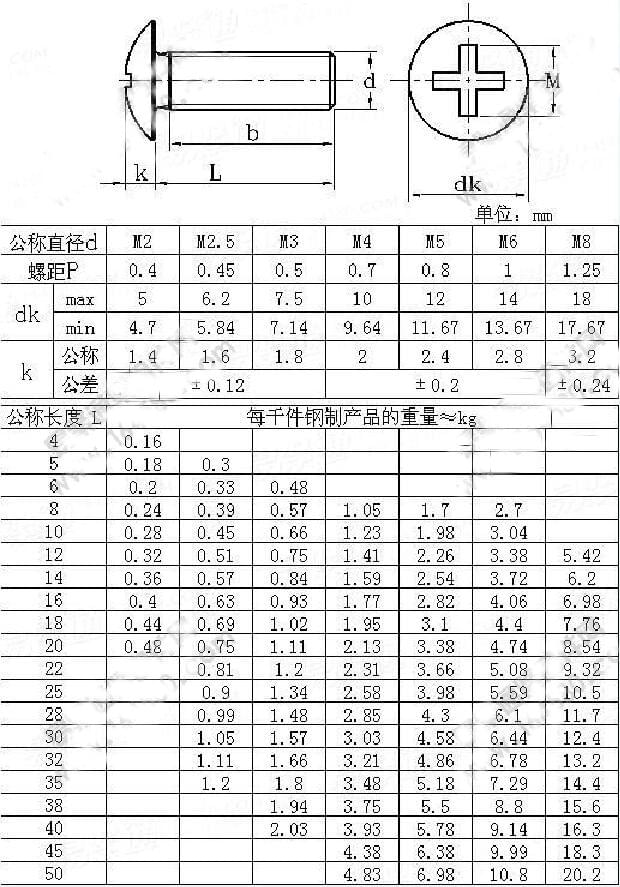 d
M
b
k
L
dk
单位：mm
公称直径d M2 M2.5 M3 M4 M5 M6 M8
螺距P 0.4 0.45 0.5 0.7 0.8 1 1.25
dk max 5 6.2 7.5 10 12 14 18
min 4.7 5.84 7.14 9.64 11.67 13.67 17.67
k 公称 1.4 1.6 1.8 2 2.4 2.8 3.2
公差 ±0.12 ±0.2 ±0.24
公称长度 L 每千件钢制产品的重量≈kg
4 0.16
5 0.18 0.3
6 0.2 0.33 0.48
8 0.24 0.39 0.57 1.05 1.7 2.7
10 0.28 0.45 0.66 1.23 1.98 3.04
12 0.32 0.51 0.75 1.41 2.26 3.38 5.42
14 0.36 0.57 0.84 1.59 2.54 3.72 6.2
16 0.4 0.63 0.93 1.77 2.82 4.06 6.98
18 0.44 0.69 1.02 1.95 3.1 4.4 7.76
20 0.48 0.75 1.11 2.13 3.38 4.74 8.54
22 0.81 1.2 2.31 3.66 5.08 9.32
25 0.9 1.34 2.58 3.98 5.59 10.5
28 0.99 1.48 2.85 4.3 6.1 11.7
30 1.05 1.57 3.03 4.58 6.44 12.4
32 1.11 1.66 3.21 4.86 6.78 13.2
35 1.2 1.8 3.48 5.18 7.29 14.4
38 1.94 3.75 5.5 8.8 15.6
40 2.03 3.93 5.78 9.14 16.3
45 4.38 6.38 9.99 18.3
50 4.83 6.98 10.8 20.2